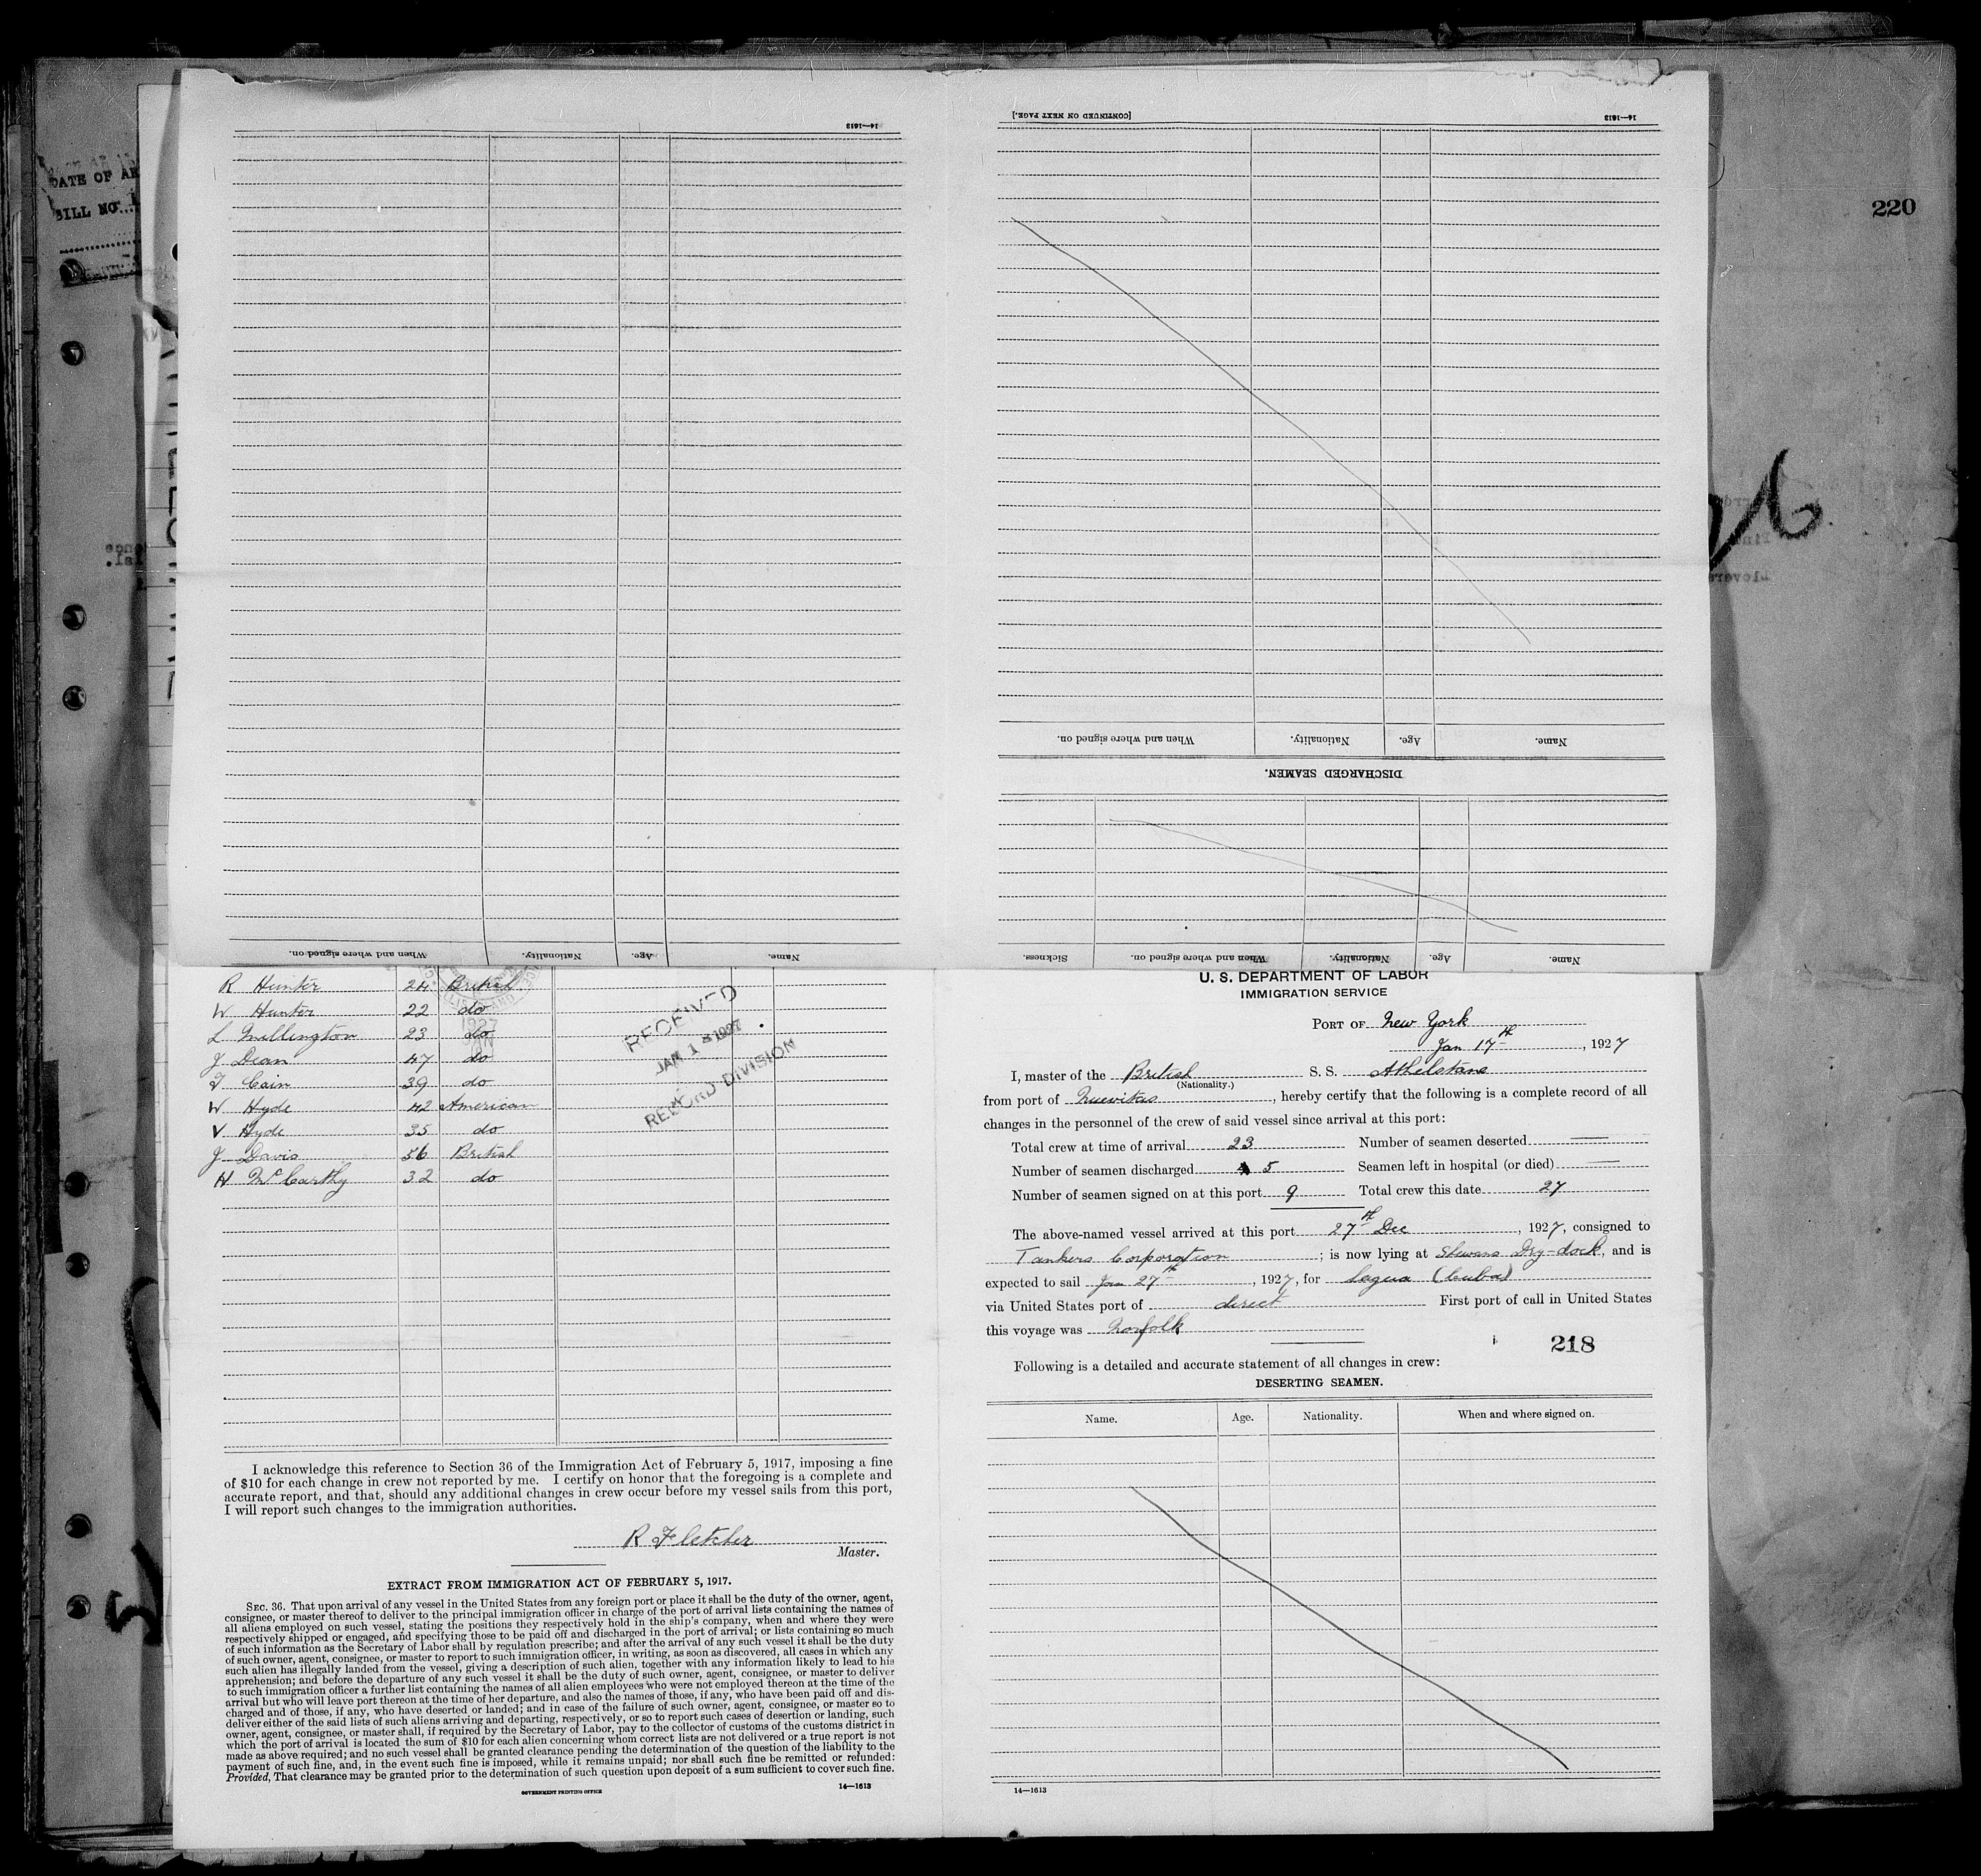 14—1613
[CONTINUED ON NEXT PAGE.]
14—1613
DATE OF
BILL NO
220
When and where signed on.
Nationality.
Age.
Name.
DISCHARGED SEAMEN.
When and where signed on.
Nationality.
Age.
Name.
Sickness.
When and where signed on.
Nationality.
Age.
Name.
R Hunter 24 British
W Hunter 22 do
L Millington 23 do
J Dean 47 do
T Cain 39 do
W Hyde 42 American
V Hyde 35 do
J Davis 56 British
H McCarthy 32 do
RECEIVED
JAN 1 1927
RECORD DIVISION
I acknowledge this reference to Section 36 of the Immigration Act of February 5, 1917, imposing a fine
of $10 for each change in crew not reported by me. I certify on honor that the foregoing is a complete and
accurate report, and that, should any additional changes in crew occur before my vessel sails from this port,
I will report such changes to the immigration authorities.
R Fletcher
Master.
EXTRACT FROM IMMIGRATION ACT OF FEBRUARY 5, 1917.
SEC. 36. That upon arrival of any vessel in the United States from any foreign port or place it shall be the duty of the owner, agent,
consignee, or master thereof to deliver to the principal immigration officer in charge of the port of arrival lists containing the names of
all aliens employed on such vessel, stating the positions they respectively hold in the ship's company, when and where they were
respectively shipped or engaged, and specifying those to be paid off and discharged in the port of arrival; or lists containing so much
of such information as the Secretary of Labor shall by regulation prescribe; and after the arrival of any such vessel it shall be the duty
of such owner, agent, consignee, or master to report to such immigration officer, in writing, as soon as discovered, all cases in which any
such alien has illegally landed from the vessel, giving a description of such alien, together with any information likely to lead to his
apprehension; and before the departure of any such vessel it shall be the duty of such owner, agent, consignee, or master to deliver
to such immigration officer a further list containing the names of all alien employees who were not employed thereon at the time of the
arrival but who will leave port thereon at the time of her departure, and also the names of those, if any, who have been paid off and dis-
charged and of those, if any, who have deserted or landed; and in case of the failure of such owner, agent, consignee, or master so to
deliver either of the said lists of such aliens arriving and departing, respectively, or so to report such cases of desertion or landing, such
owner, agent, consignee, or master shall, if required by the Secretary of Labor, pay to the collector of customs of the customs district in
which the port of arrival is located the sum of $10 for each alien concerning whom correct lists are not delivered or a true report is not
made as above required; and no such vessel shall be granted clearance pending the determination of the question of the liability to the
payment of such fine, and, in the event such fine is imposed, while it remains unpaid; nor shall such fine be remitted or refunded:
Provided, That clearance may be granted prior to the determination of such question upon deposit of a sum sufficient to cover such fine.
GOVERNMENT PRINTING OFFICE
14—1613
U. S. DEPARTMENT OF LABOR
IMMIGRATION SERVICE
PORT OF New York
Jan 17th, 1927
I, master of the British S. S. Athelstane
(Nationality.)
from port of Nuevitas, hereby certify that the following is a complete record of all
changes in the personnel of the crew of said vessel since arrival at this port:
Total crew at time of arrival 23 Number of seamen deserted —
Number of seamen discharged 5 Seamen left in hospital (or died) —
Number of seamen signed on at this port 9 Total crew this date 27
The above-named vessel arrived at this port 27th Dec, 1927, consigned to
Tankers Corporation; is now lying at Shewans Dry-dock, and is
expected to sail Jan 27th, 1927, for Sagua (Cuba)
via United States port of direct First port of call in United States
this voyage was Norfolk
218
Following is a detailed and accurate statement of all changes in crew:
DESERTING SEAMEN.
Name. Age. Nationality. When and where signed on.
14—1613